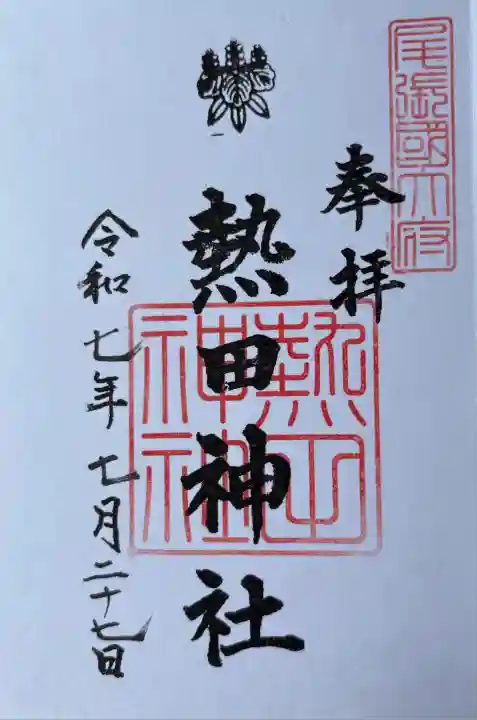 尾張國大府
奉拝
熱田神社
熱田神社
令和七年七月二十七日